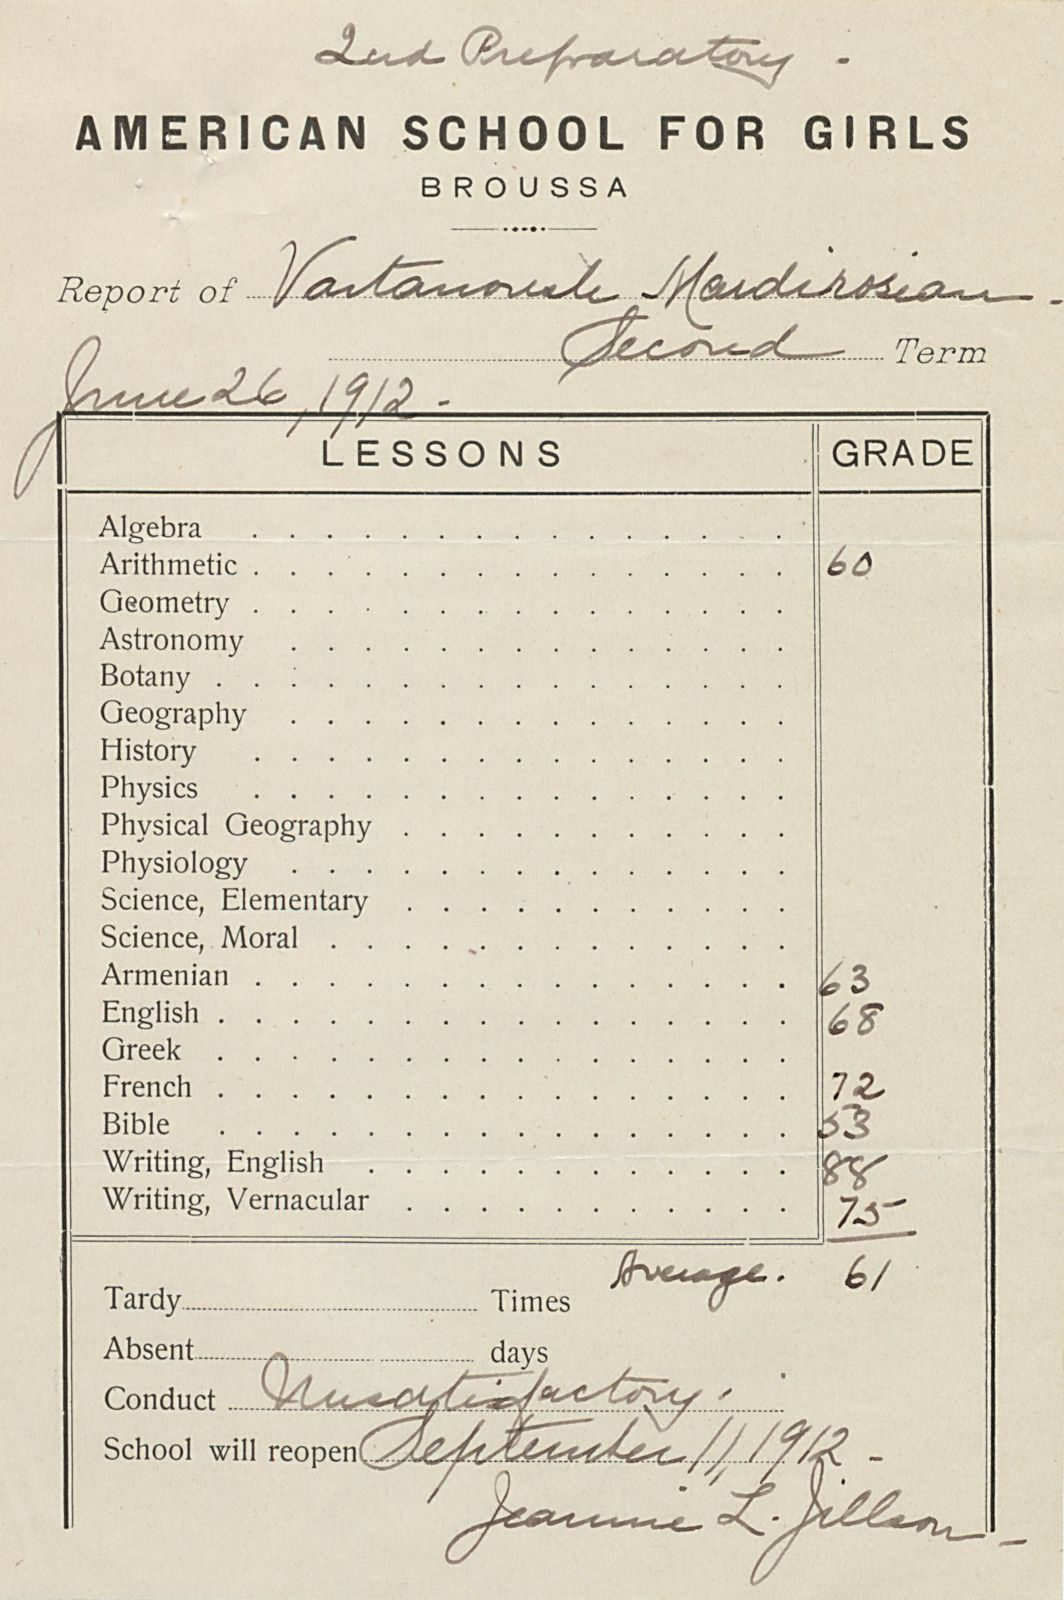 2nd Preparatory -
AMERICAN SCHOOL FOR GIRLS
BROUSSA
Report of Vartanoushe Mardirosian -
Second Term
June 26, 1912 -
LESSONS GRADE
Algebra
Arithmetic 60
Geometry
Astronomy
Botany
Geography
History
Physics
Physical Geography
Physiology
Science, Elementary
Science, Moral
Armenian 63
English 68
Greek
French 72
Bible 53
Writing, English 88
Writing, Vernacular 75
Average. 61
Tardy Times
Absent days
Conduct Unsatisfactory.
School will reopen September 11, 1912 -
Jeannie L. Jillson -